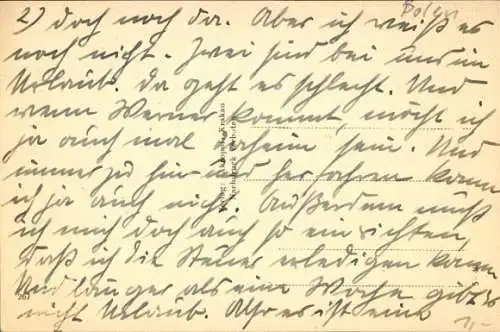 2) doch noch da. Aber ich weiß es
noch nicht. Zwei sind bei uns im
Urlaub. Da geht es schlecht. Und
wenn Werner kommt, möcht ich
ja auch mal daheim sein. Und
immerzu hin- und herfahren kann
ich ja auch nicht. Außerdem muß
ich mich doch auch so einrichten,
daß ich die Steuer erledigen kann.
Und länger als eine Woche gibt es
nicht Urlaub. Also es ist eine
Krakau
261
1,-